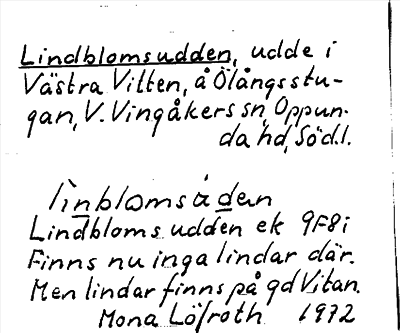 Lindblomsudden, udde i
Västra Vilten, å Ölångsstu-
gan, V. Vingåkers sn, Oppun-
da hd, Södl.
linblomsådan
Lindblomsudden ek 9F8i
Finns nu inga lindar där.
Men lindar finns på gd Vitan.
Mona Löfroth 1972